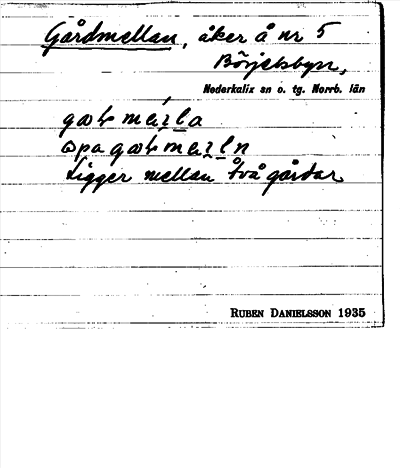 Gårdmellan, åker å nr 5
Börjelsbyn,
Nederkalix sn o. tg. Norrb. län
Ligger mellan två gårdar
RUBEN DANIELSSON 1935